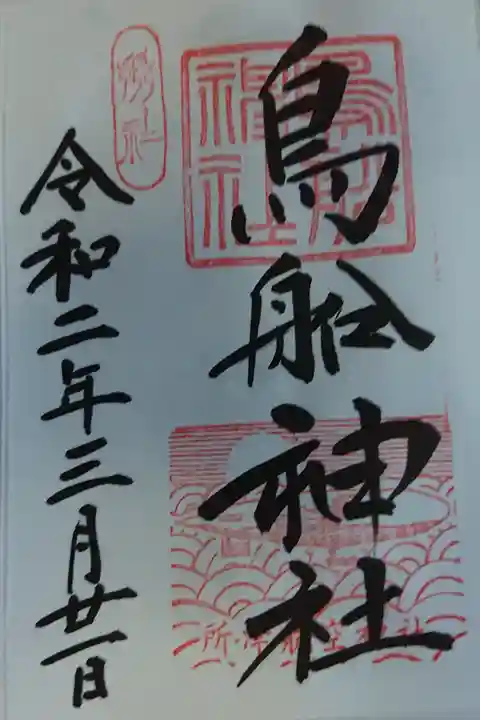 鳥船神社
令和二年三月廿一日
鳥船
神社
所澤航空神社